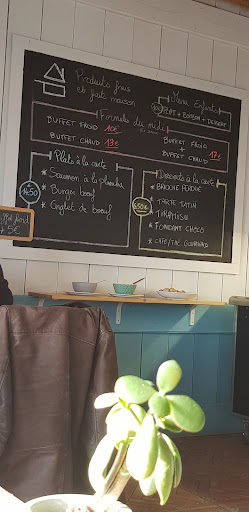 Produits frais
et faits maison
Menu Enfant
PLAT + BOISSON + DESSERT
Formules du midi
BUFFET FROID 10€
BUFFET CHAUD 13€
BUFFET FROID
+
BUFFET CHAUD 17€
Plats à la carte
14€50
* Saumon à la plancha
* Burger bœuf
* Onglet de bœuf
Desserts à la carte
* BRIOCHE PERDUE
* TARTE TATIN
* TIRAMISU
* FONDANT CHOCO
* CAFÉ/THÉ GOURMAND